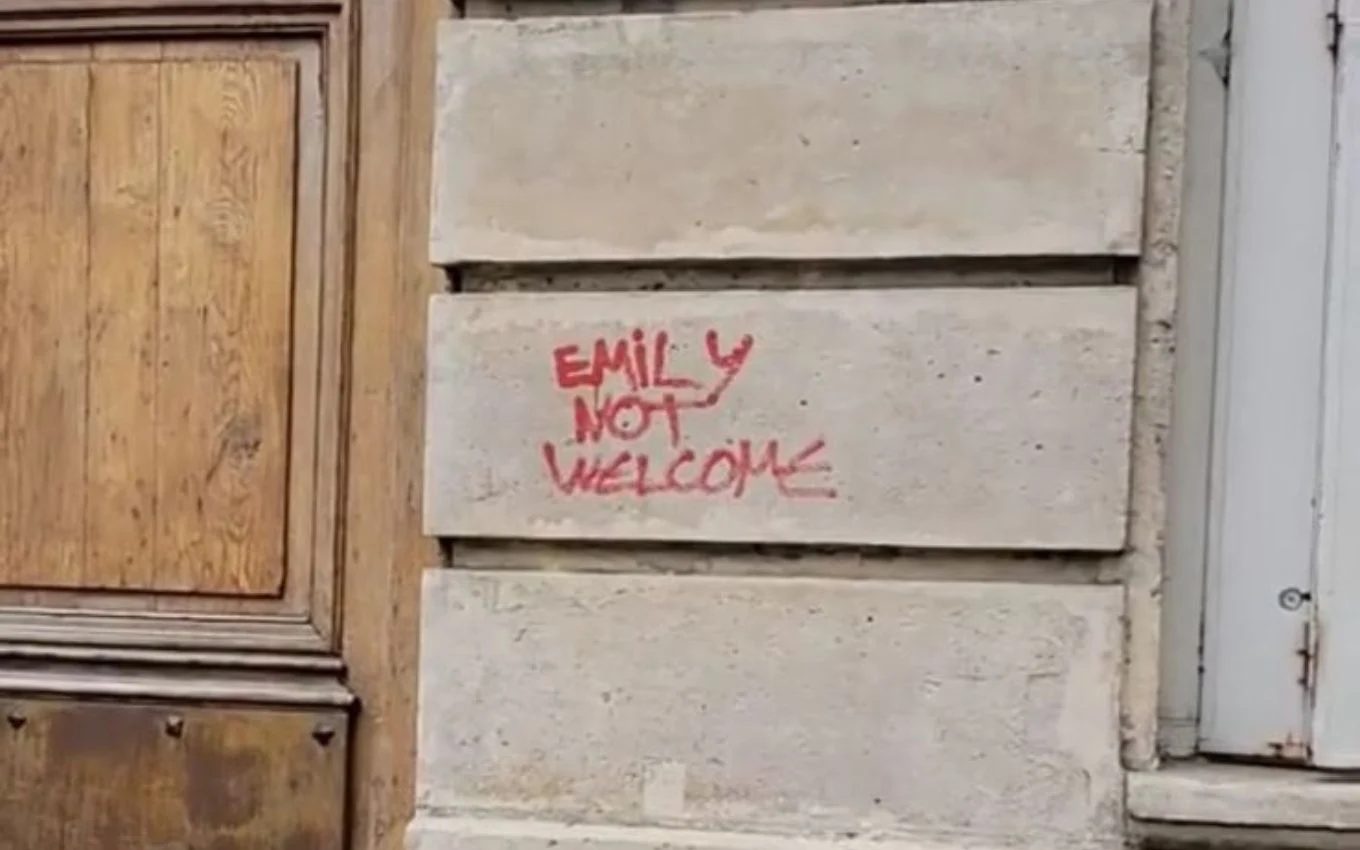 EMiLY
NOT
WELCOME